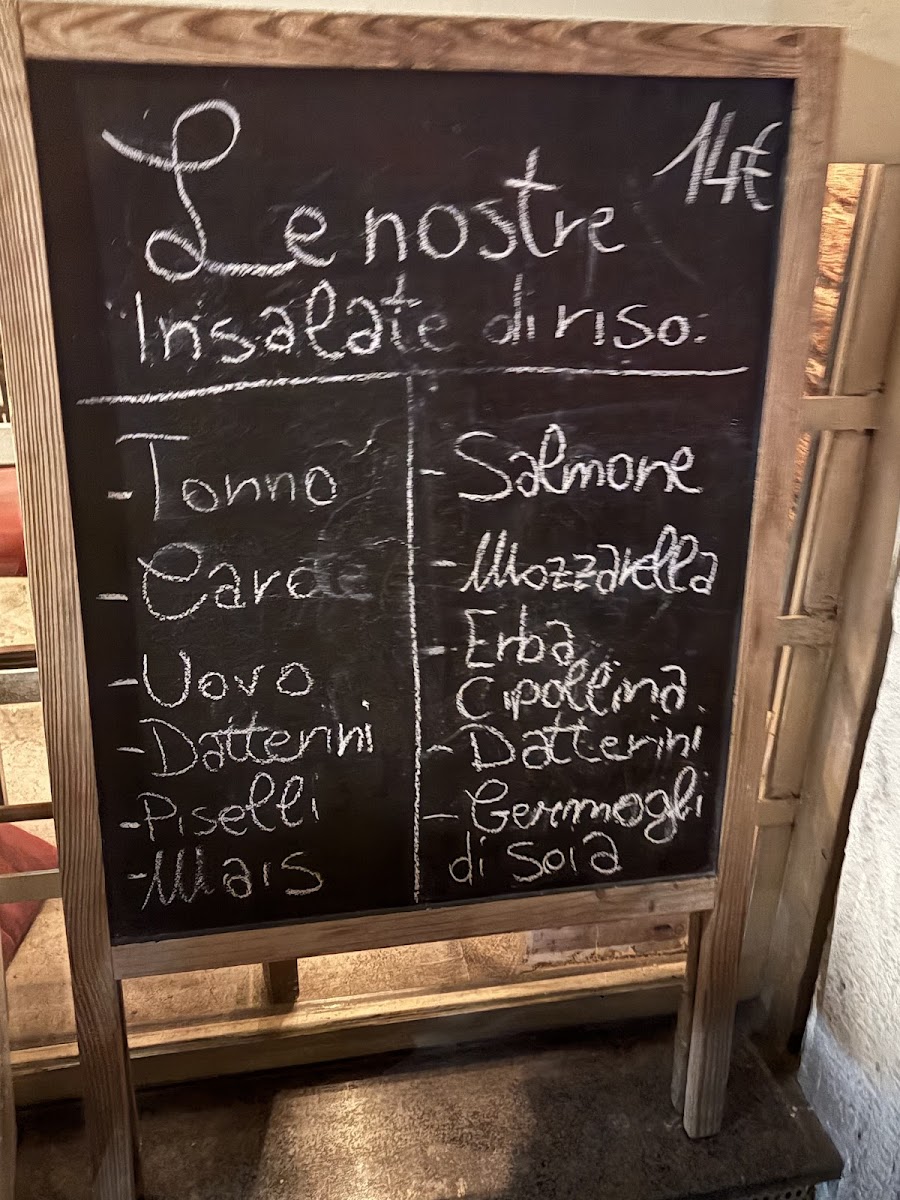 Le nostre 14€
Insalate di riso:
- Tonno
- Carote
- Uovo
- Datterini
- Piselli
- Mais
- Salmone
- Mozzarella
- Erba
Cipollina
- Datterini
- Germogli
di soia